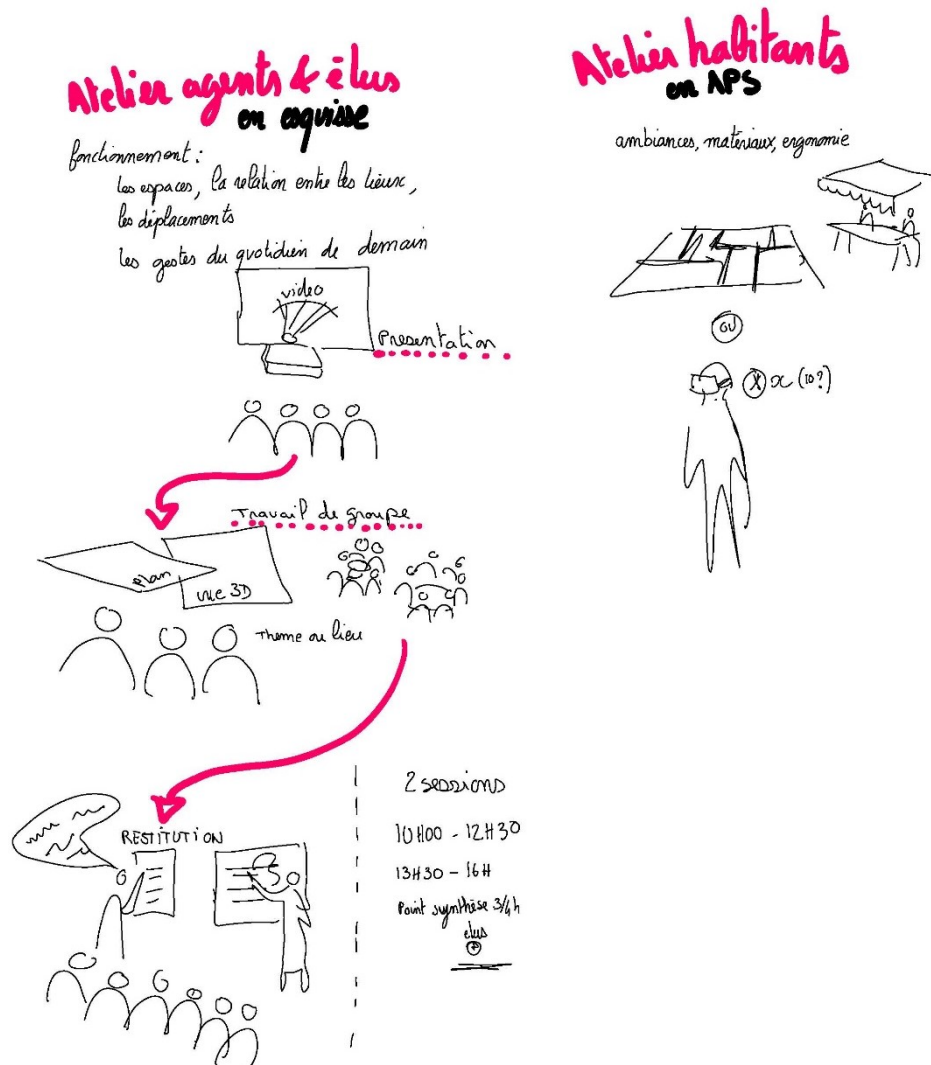 Atelier agents & élus
en esquisse
fonctionnement :
les espaces, la relation entre les lieux,
les déplacements
les gestes du quotidien de demain
video
Presentation
Travail de groupe
plan
vue 3D
Theme ou lieu
RESTITUTION
2 sessions
10H00 - 12H30
13H30 - 16H
Point synthèse 3/4h
elus
+
Atelier habitants
en APS
ambiances, matériaux, ergonomie
ou
x (10?)